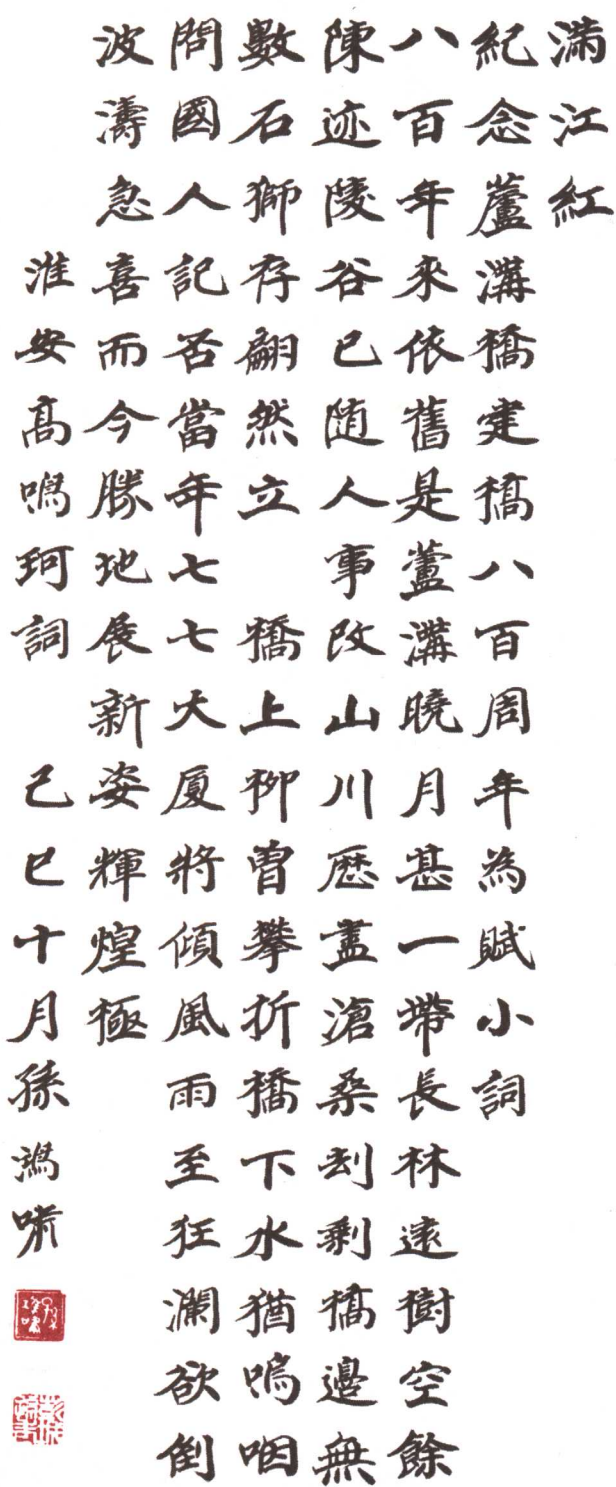 滿江紅
紀念蘆溝橋建橋八百周年為賦小詞
八百年來依舊是蘆溝曉月甚一帶長林遠樹空餘
陳迹陵谷已随人事改山川歷盡滄桑刧剩橋邊無
數石獅存翩然立 橋上柳曾攀折橋下水猶嗚咽
問國人記否當年七七大厦將傾風雨至狂瀾欲倒
波濤急喜而今勝地展新姿輝煌極
淮安高鳴珂詞 己巳十月孫鴻嘯